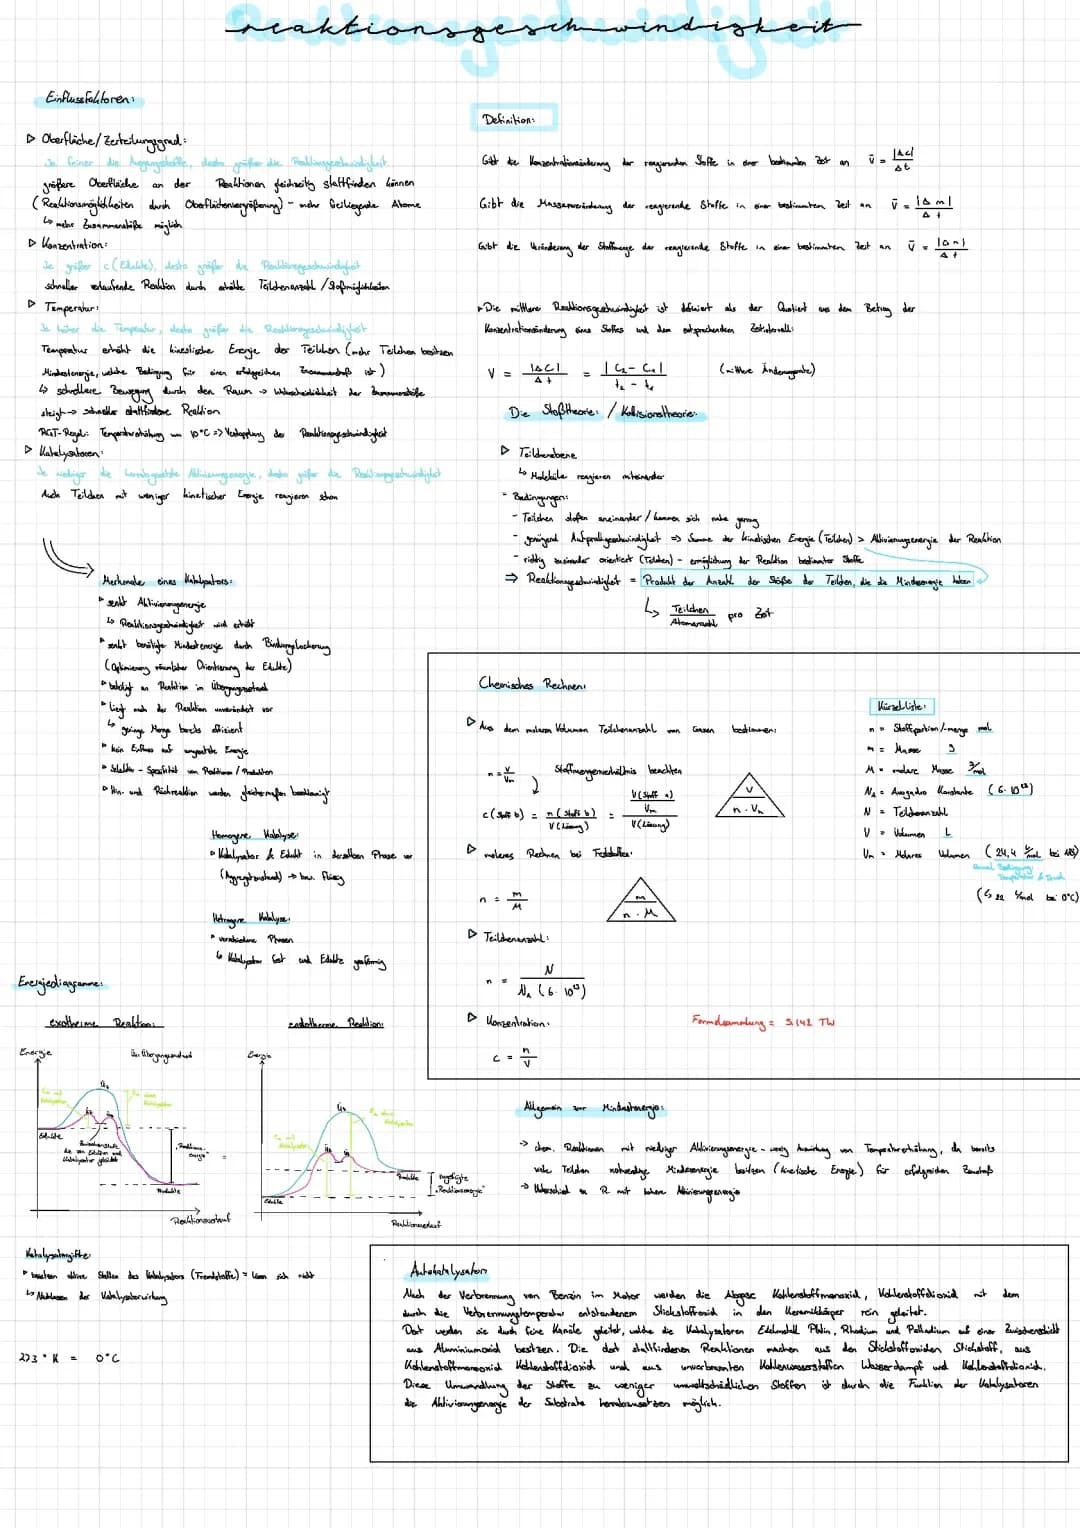 reaktionsgeschwindigkeit
Einflussfaktoren:
▷ Oberfläche/Zerteilungsgrad:
Je feiner die Ausgangsstoffe, desto größer die Reaktionsgeschwindigkeit
größere Oberfläche an der Reaktionen gleichzeitig stattfinden können
(Reaktionsmöglichkeiten durch Oberflächenvergrößerung) - mehr freiliegende Atome
↳ mehr Zusammenstöße möglich
▷ Konzentration:
Je größer c (Edukte), desto größer die Reaktionsgeschwindigkeit
schneller verlaufende Reaktion durch erhöhte Teilchenanzahl / Stoßmöglichkeiten
▷ Temperatur:
Je höher die Temperatur, desto größer die Reaktionsgeschwindigkeit
Temperatur erhöht die kinetische Energie der Teilchen (mehr Teilchen besitzen
Mindestenergie, welche Bedingung für einen erfolgreichen Zusammenstoß ist)
↳ schnellere Bewegung durch den Raum → Wahrscheinlichkeit der Zusammenstöße
steigt → schneller stattfindene Reaktion
RGT-Regel: Temperaturerhöhung um 10°C => Verdopplung der Reaktionsgeschwindigkeit
▷ Katalysatoren:
Je weniger die herabgesetzte Aktivierungsenergie, desto größer die Reaktionsgeschwindigkeit
Auch Teilchen mit weniger kinetischer Energie reagieren schon
Merkmale eines Katalysators:
senkt Aktivierungsenergie
↳ Reaktionsgeschwindigkeit wird erhöht
senkt benötigte Mindestenergie durch Bindungslockerung
(Optimierung räumlicher Orientierung der Edukte)
beteiligt an Reaktion in Übergangszustand
liegt nach der Reaktion unverändert vor
↳ geringe Menge bereits effizient
kein Einfluss auf umgesetzte Energie
Selektiv - Spezifität von Reaktionen / Produkten
Hin- und Rückreaktion werden gleichermaßen beschleunigt
Homogene Katalyse:
Katalysator & Edukt in derselben Phase vor
(Aggregatzustand) → bsw. flüssig
Hetrogene Katalyse:
verschiedene Phasen
↳ Katalysator fest und Edukte gasförmig
Definition:
Gibt die Konzentrationsänderung der reagierenden Stoffe in einer bestimmten Zeit an v̄ = |Δc| / Δt
Gibt die Massenveränderung der reagierende Stoffe in einer bestimmten Zeit an v̄ = |Δm| / Δt
Gibt die Veränderung der Stoffmenge der reagierende Stoffe in einer bestimmten Zeit an v̄ = |Δn| / Δt
Die mittlere Reaktionsgeschwindigkeit ist definiert als der Quotient aus dem Betrag der
Konzentrationsänderung eines Stoffes und dem entsprechendem Zeitintervall:
v = |Δc| / Δt = |c₂ - c₁| / t₂ - t₁ (mittlere Änderungsrate)
Die Stoßtheorie: / Kollisionstheorie:
▷ Teilchenebene
↳ Moleküle reagieren miteinander
Bedingungen:
- Teilchen stoßen aneinander / kommen sich nahe genug
- genügend Aufprallgeschwindigkeit ⇒ Summe der kinetischen Energie (Teilchen) > Aktivierungsenergie der Reaktion
- richtig zueinander orientiert (Teilchen) - ermöglichung der Reaktion bestimmter Stoffe
⇒ Reaktionsgeschwindigkeit = Produkt der Anzahl der Stöße der Teilchen, die die Mindestenergie haben
↳ Teilchen / Atomanzahl pro Zeit
Chemisches Rechnen:
▷ Aus dem molaren Volumen Teilchenanzahl von Gasen bestimmen:
n = V / Vm Stoffmengenverhältnis beachten
c (Stoff b) = n (Stoff b) / V (Lösung) = V (Stoff a) / Vm / V (Lösung)
V
n · Vm
▷ molares Rechnen bei Feststoffen:
n = m / M
m
n · M
▷ Teilchenanzahl:
n = N / NA (6 · 10²³)
▷ Konzentration:
c = n / V
Formelsammlung = S.142 TW
Kürzelliste:
n = Stoffportion/-menge mol
m = Masse g
M = molare Masse g/mol
NA = Avogadro Konstante (6 · 10²³)
N = Teilchenanzahl
V = Volumen L
Vm = Molares Volumen (24,4 L/mol bei
Temperatur & Druck
(↳ 22 L/mol bei 0°C)
Energiediagramme:
exotherme Reaktion:
Energie
Ü: Übergangszustand
Üx
EA mit Katalysator
EA ohne Katalysator
Edukte
Zwischenstufe
die von Edukten und
Katalysator gebildet
"Reaktionsenergie"
Produkte
Reaktionsverlauf
endotherme Reaktion:
Energie
Üx
EA mit Katalysator
EA ohne Katalysator
Edukte
Produkte
"Reaktionsenergie"
Reaktionsverlauf
Allgemein zur Mindestenergie:
→ chem. Reaktionen mit niedriger Aktivierungsenergie - wenig Auswirkung von Temperaturerhöhung, da bereits
viele Teilchen notwendige Mindestenergie besitzen (kinetische Energie) für erfolgreichen Zusammenstoß
→ Unterschied zu R. mit hoher Aktivierungsenergie
Katalysatorgifte:
besetzen aktive Stellen des Katalysators (Fremdstoffe) = lösen sich nicht
↳ Nachlassen der Katalysatorwirkung
273 °K = 0°C
Autokatalysator
Nach der Verbrennung von Benzin im Motor werden die Abgase Kohlenstoffmonoxid, Kohlenstoffdioxid mit dem
durch die Verbrennungstemperatur entstandenem Stickstoffoxid in den Keramikkörper rein geleitet.
Dort werden sie durch feine Kanäle geleitet, welche die Katalysatoren Edelmetall Platin, Rhodium und Palladium auf einer Zwischenschicht
aus Aluminiumoxid besitzen. Die dort stattfindenen Reaktionen machen aus den Stickstoffoxiden Stickstoff, aus
Kohlenstoffmonoxid Kohlenstoffdioxid und aus unverbrannten Kohlenwasserstoffen Wasserdampf und Kohlenstoffdioxid.
Diese Umwandlung der Stoffe zu weniger umweltschädlichen Stoffen ist durch die Funktion der Katalysatoren
die Aktivierungsenergie der Substrate herabzusetzen möglich.